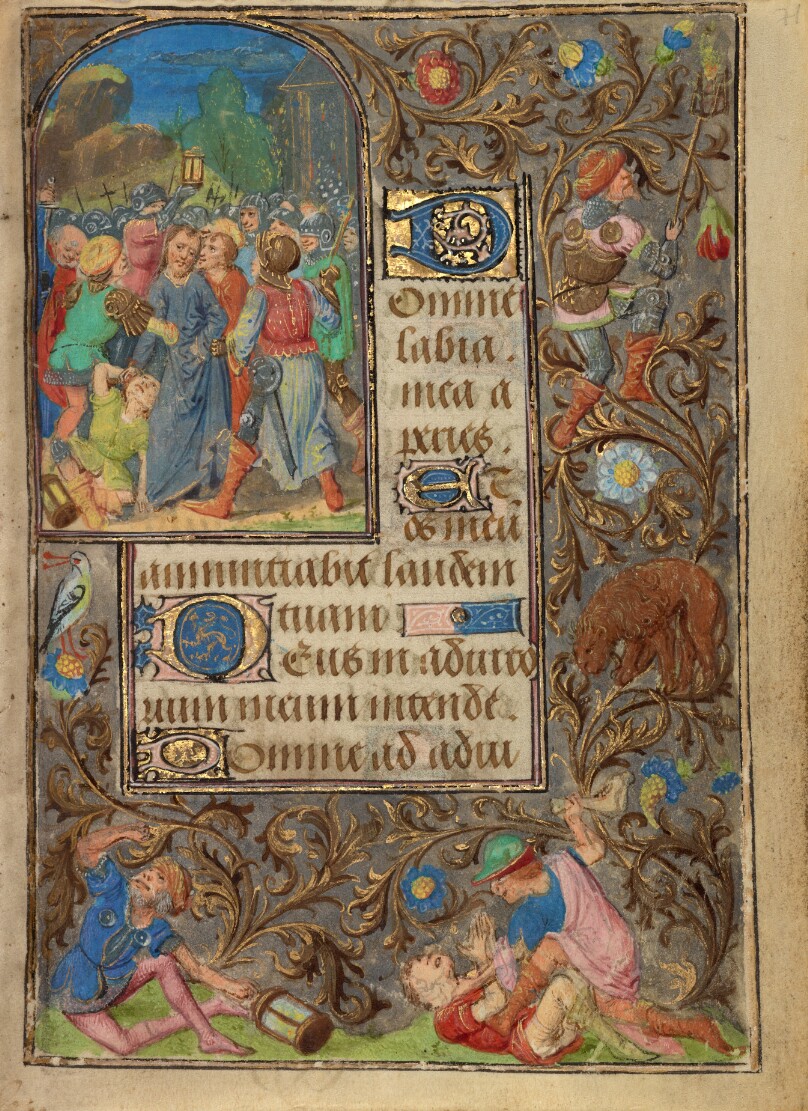 Domine
labia .
mea a
peries .
Et
os meu
annuntiabit laudem
tuam
Deus in adiuto
rium meum intende .
Domine ad adiu
71